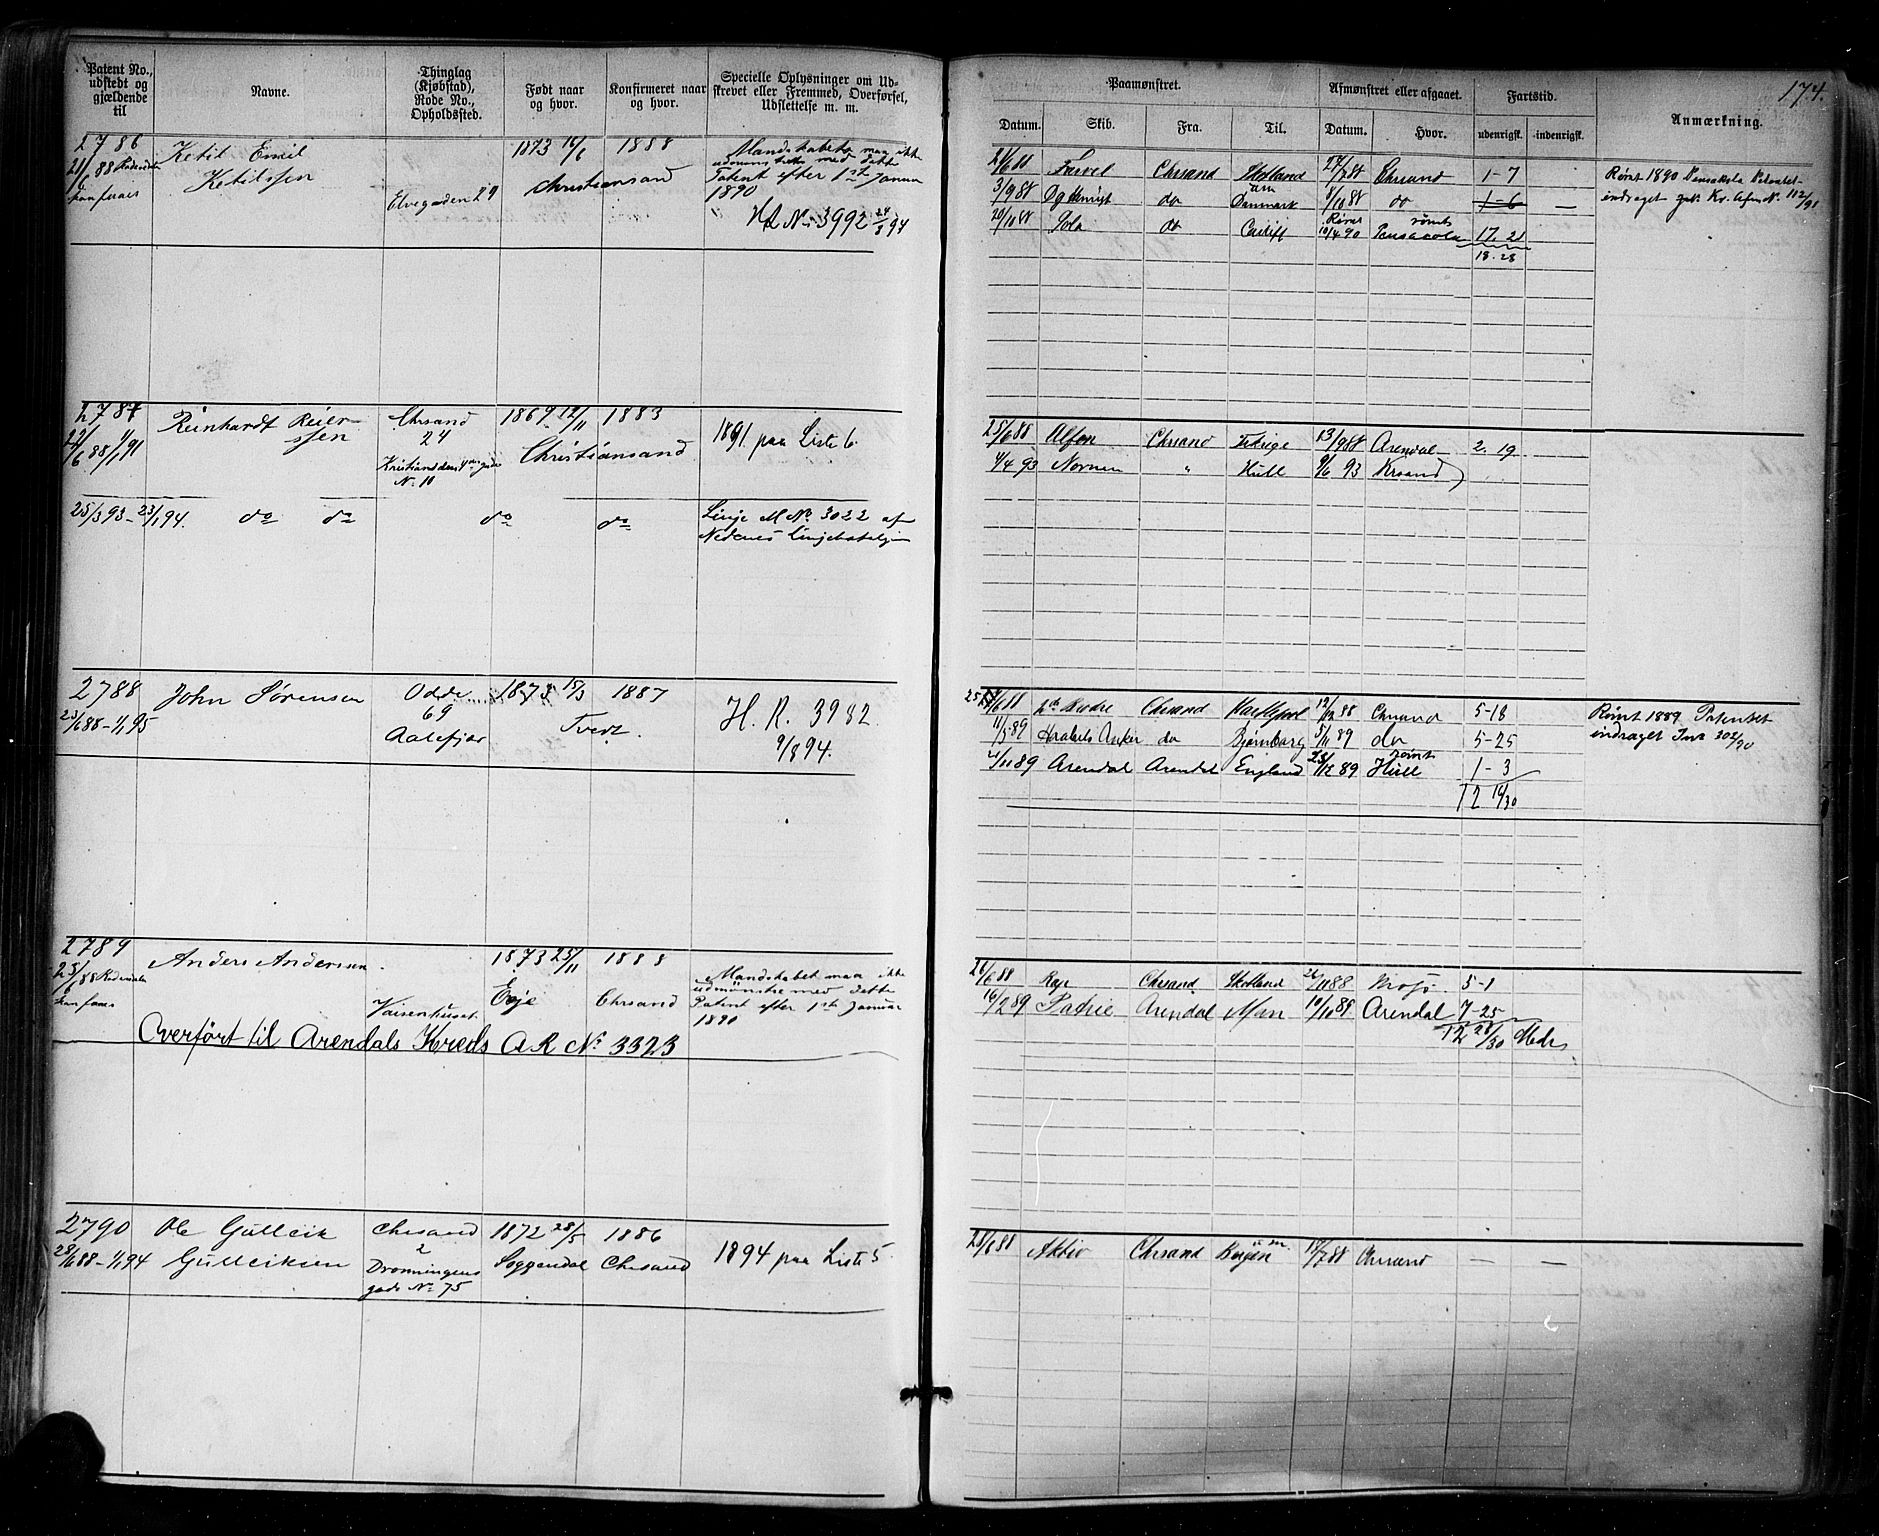 174.
Patent No., udstedt og gjældende til
Navne.
Thinglag (Kjøbstad), Rode No., Opholdssted.
Født naar og hvor.
Konfirmeret naar og hvor.
Specielle Oplysninger om Udskrevet eller Fremmed, Overførsel, Udslettelse m. m.
Paamønstret.
Afmønstret eller afgaaet.
Fartstid.
Anmærkning.
Datum. Skib. Fra. Til. Datum. Hvor. udenrigsk. indenrigsk.
2786
Ketil Emil
Ketilssen
Elvegaden 29
1873 16/6 1888
Christiansand
Mandskabet maa ikke
udmønstres med dette
Patent efter 1ste Januar
1890
HR No 3992 24/8 94
21/6 88 Farvel Chrsand Skotland 27/7 88 Chrsand 1-7
3/9 88 Dagm do Danmark 8/10 88 do 1-6 —
20/10 88 Sola do Cardiff 10/4 90 rømt Pensacola 17. 21
18-28
Rømt 1890 Pensakola Patentet
indraget No 112/91
2787
22/6 88 1/1 91
Reinhardt Reier-
ssen
Chrsand
24
No 10
1869 12/11 1883
Christiansand
1891 paa Liste 6.
25/6 88 Alfen Chrsand 13/9 88 Arendal 2. 19
4/4 93 Nornen " Hull 9/6 93 Krsand
25/3 93 - 23/1 94. do do do do
Linje M No 3022 af
Nedenes
2788
23/6 88 - 1/1 95
John Sørensen
Odde
69
Aalefjær
1873 15/3 1887
Tveit.
H. R. 3982.
9/8 94.
Chrsand Hartlepool 12/12 88 Chrsand 5-18
11/5 89 Anker do Bjørneborg 3/11 89 do 5-25
4/11 89 Arendal Arendal England 28/12 89 rømt Hull 1-3
12 16/30
Rømt 1889 Patentet
indraget 302/90
2789
25/6 88
Anders Andersen
Vaisenhuset
1873 25/11 1888
Evje Chrsand
Mandskabet maa ikke
udmønstre med dette
Patent efter 1ste Januar
1890
Overført til Arendals Kreds A R No 3323
26/6 88 Rap Chrsand Skotland 26/11 88 5-1
16/2 89 Arendal 10/10 89 Arendal 7-25
12 26/30 Mdr
2790
28/6 88 - 1/1 94
Ole Gulleik
Gulleiksen
Chrsand
2
Dronningens
gade No 75
1872 28/5 1886
Soggendal Chrsand
1894 paa Liste 5.
28/6 88 Aktiv Chrsand Bergen 19/7 88 Chrsand — —